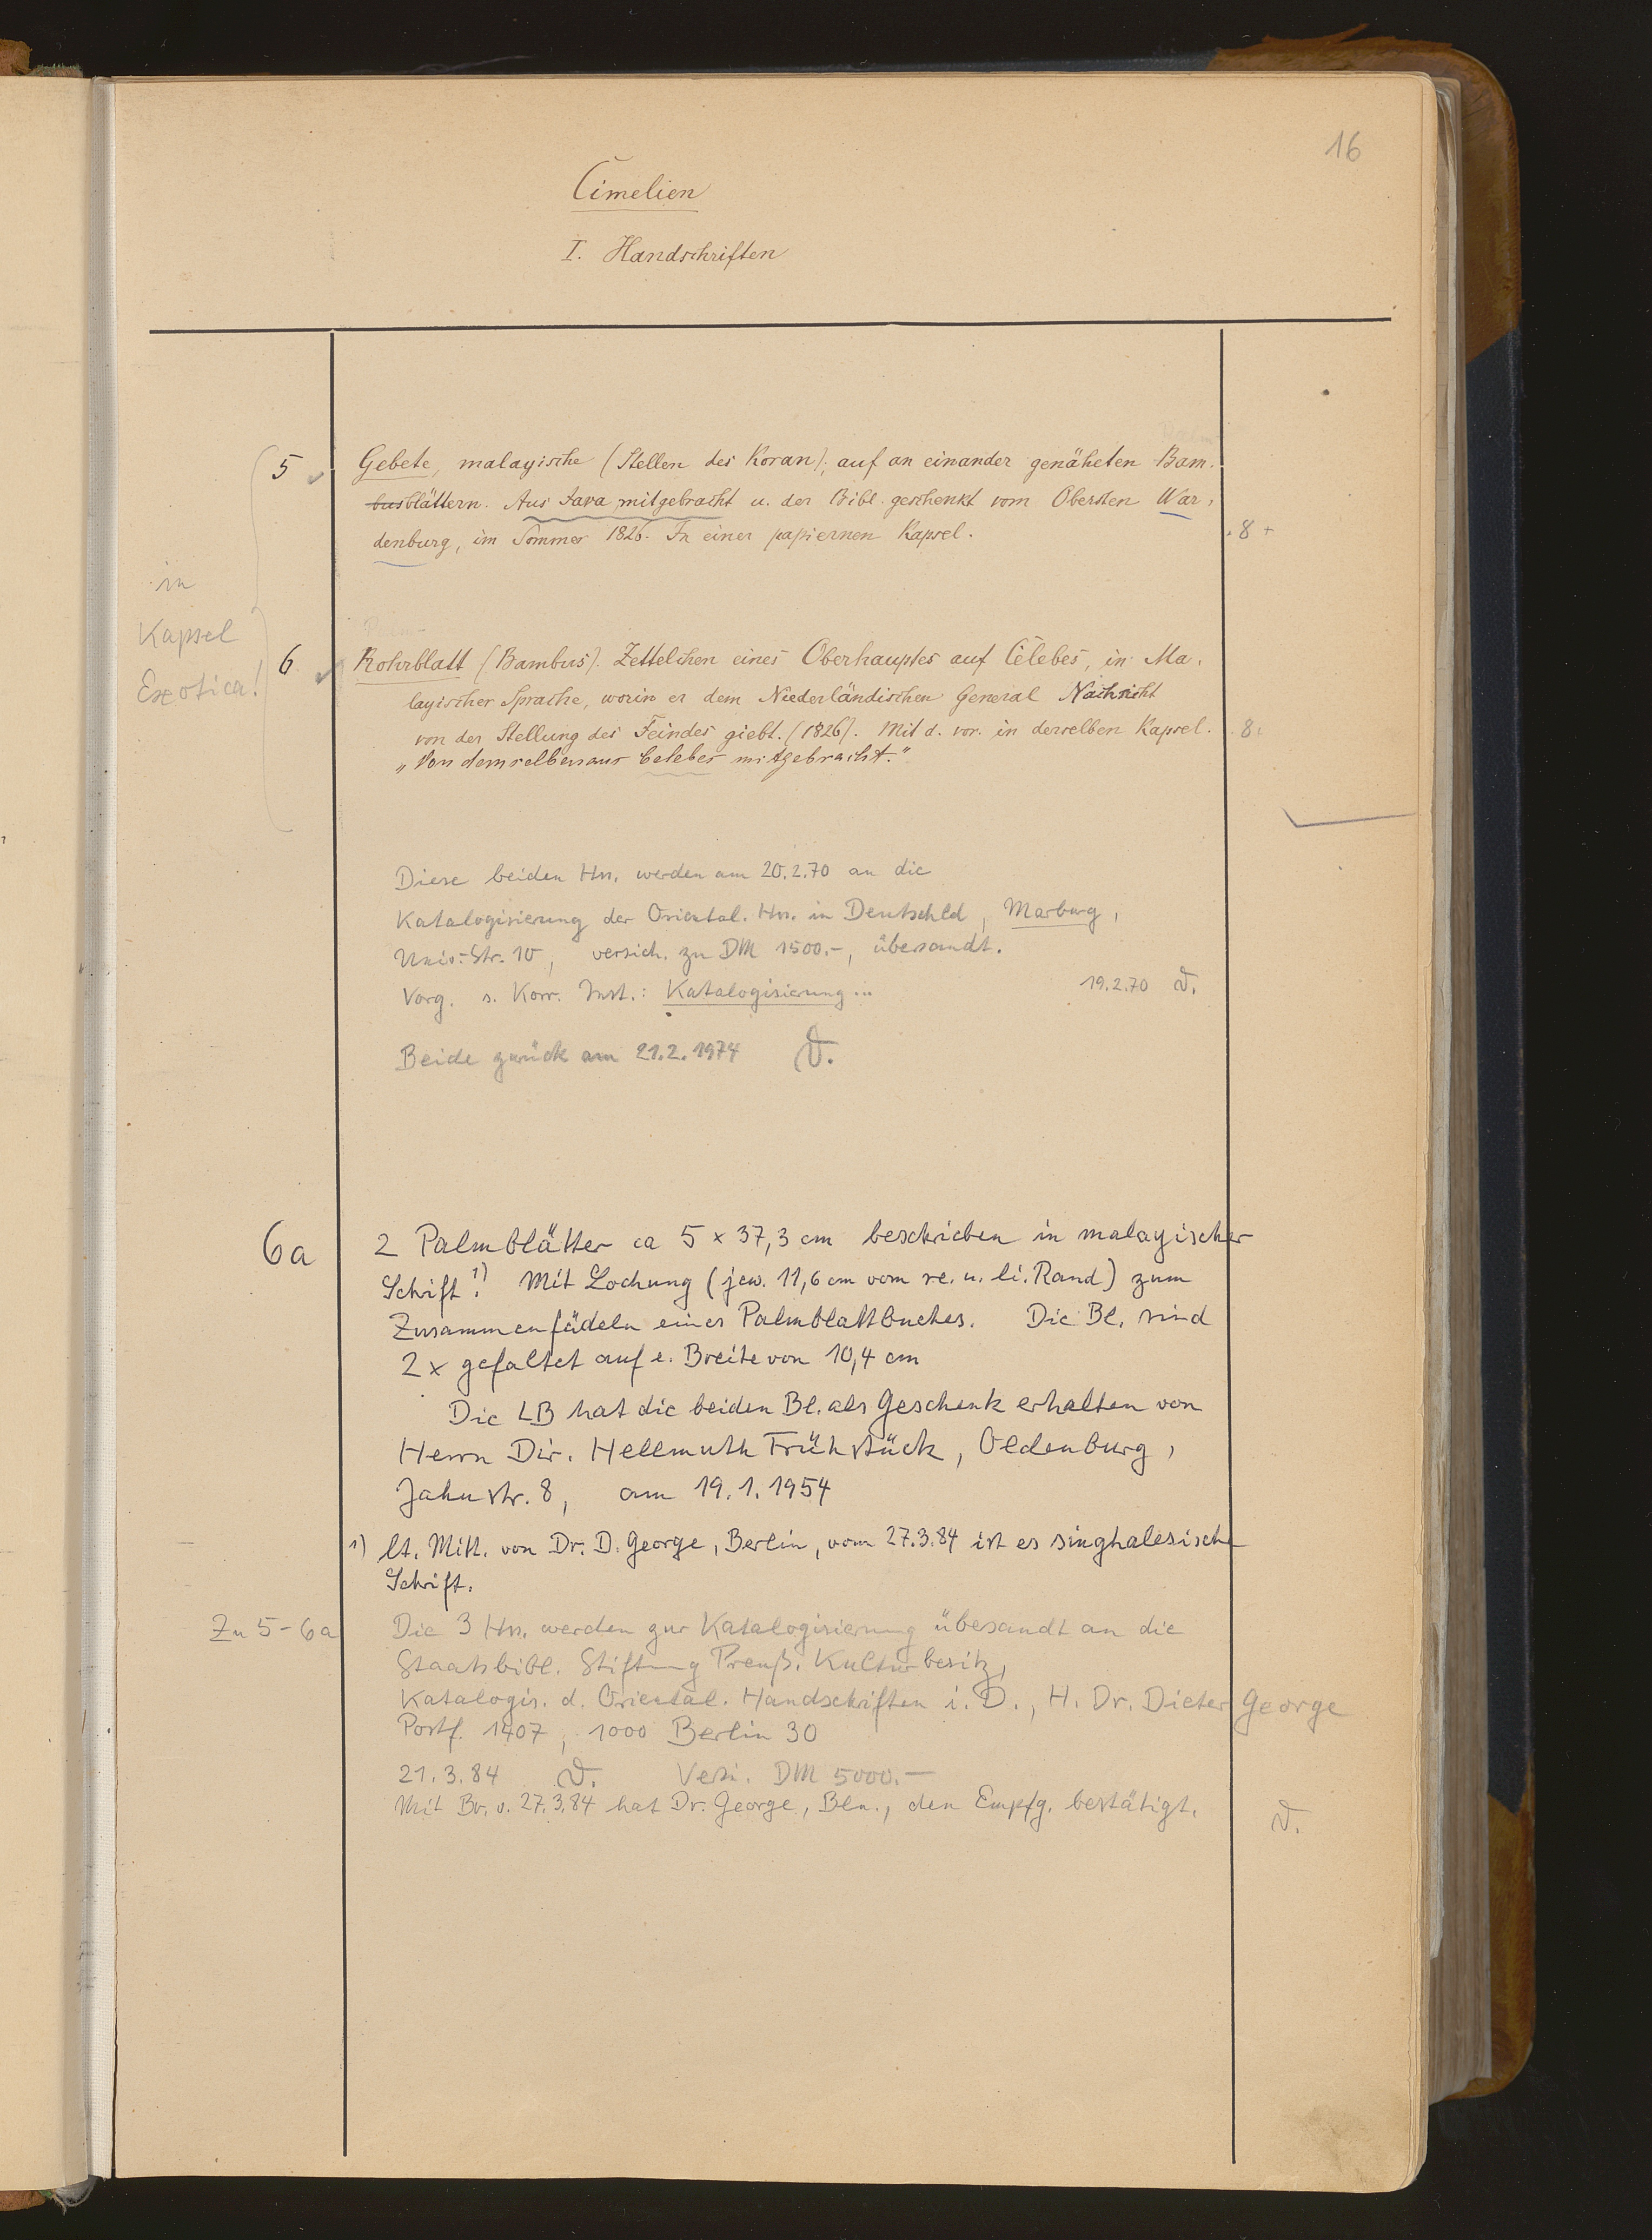 16
Cimelien
I. Handschriften
5 Gebete, malayische (Stellen des Koran), auf an einander genäheten Bam-
busblättern. Aus Java mitgebracht u. der Bibl. geschenkt vom Obersten War-
denburg, im Sommer 1826. In einer papiernen Kapsel. 8
in
Kapsel
Exotica!
6 Rohrblatt (Bambus). Zettelchen eines Oberhauptes auf Célebes, in Ma-
layischer Sprache, worin er dem Niederländischen General Nachricht
von der Stellung des Feindes giebt. (1826). Mit d. vor. in derselben Kapsel. 8
„Von demselben aus Celebes mitgebracht."
Diese beiden Hss. werden am 20.2.70 an die
Katalogisierung der Oriental. Hss. in Deutschld, Marburg,
Univ.-Str. 10, versich. zu DM 1500.-, übersandt.
Vorg. s. Korr. Inst.: Katalogisierung... 19.2.70 D.
Beide zurück am 21.2.1974 D.
6a 2 Palmblätter ca 5 x 37,3 cm beschrieben in malayischer
Schrift 1)! Mit Lochung (jew. 11,6 cm vom re. u. li. Rand) zum
Zusammenfädeln eines Palmblattbuches. Die Bl. sind
2 x gefaltet auf e. Breite von 10,4 cm
Die LB hat die beiden Bl. als Geschenk erhalten von
Herrn Dir. Hellmuth Frühstück, Oldenburg,
Jahnstr. 8, am 19.1.1954
1) lt. Mitt. von Dr. D. George, Berlin, vom 27.3.84 ist es singhalesische
Schrift.
Zu 5-6a Die 3 Hss. werden zur Katalogisierung übersandt an die
Staatsbibl. Stiftung Preuß. Kulturbesitz,
Katalogis. d. Oriental. Handschriften i. D., H. Dr. Dieter George
Postf. 1407, 1000 Berlin 30
21.3.84 D. Versi. DM 5000.-
Mit Br. v. 27.3.84 hat Dr. George, Bln., den Empfg. bestätigt. D.